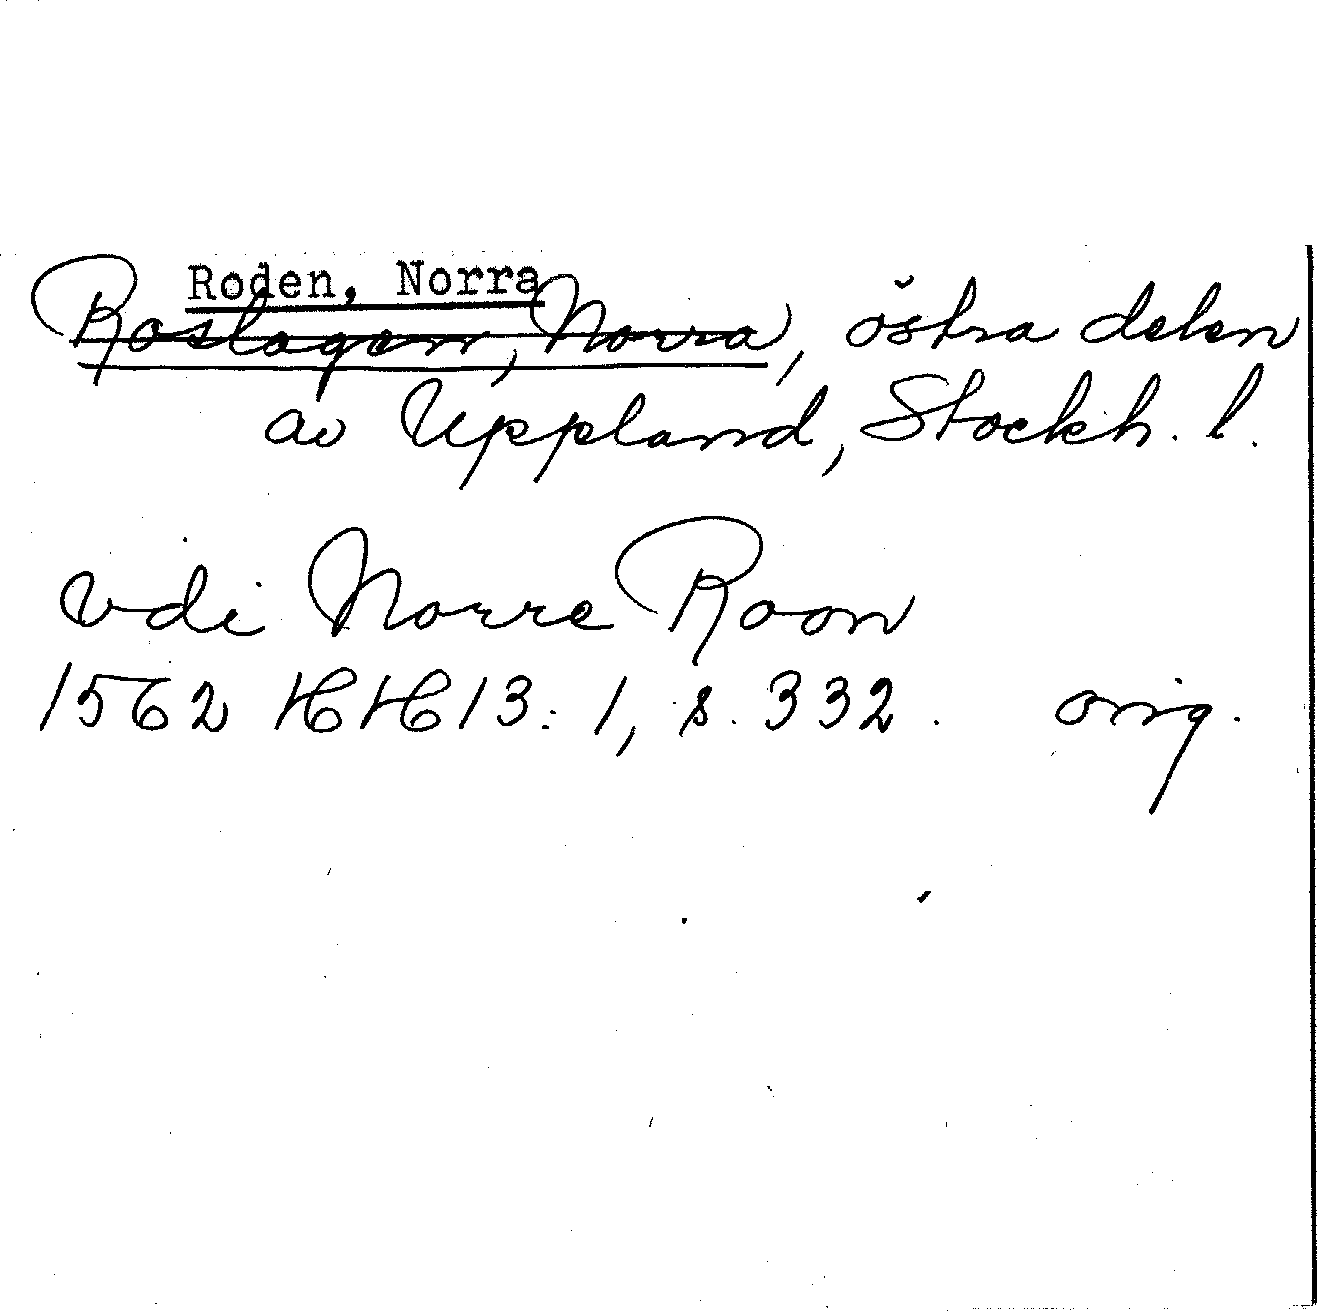 Roden, Norra
Roslagen, Norra, östra delen
av Uppland, Stockh. l.
vdi Norre Roon
1562 HH 13:1, s. 332. orig.